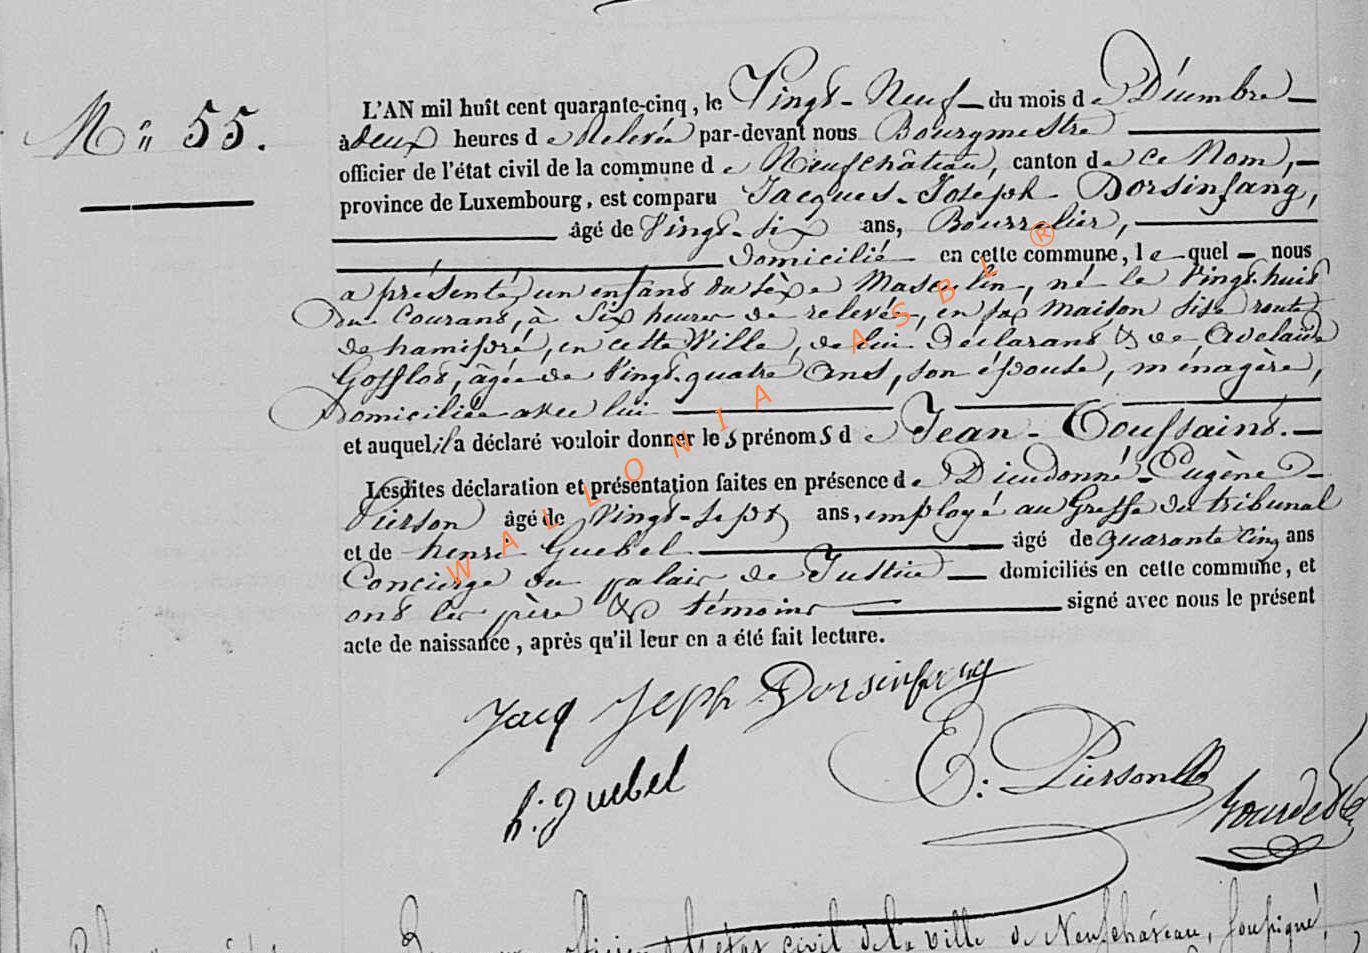 N° 55.
L'AN mil huit cent quarante-cinq, le Vingt-Neuf du mois de Décembre
à deux heures de Relevée par-devant nous Bourgmestre
officier de l'état civil de la commune de Neufchâteau, canton de ce Nom,
province de Luxembourg, est comparu Jacques-Joseph Dorsinfang,
âgé de Vingt-six ans, Bourrelier,
Domicilié en cette commune, lequel nous
a présenté un enfant du sèxe Masculin, né le Vingt-huit
du Courant, à Six heures de relevée, en sa maison sise route
de hamipré, en cette Ville, de lui Déclarant & de Adelaïde
Gofflot, âgée de Vingt-quatre Ans, son épouse, ménagère,
Domiciliée avec lui
et auquel il a déclaré vouloir donner les prénoms de Jean-Toussaint.
Lesdites déclaration et présentation faites en présence de Dieudonné-Eugène
Pierson âgé de Vingt-sept ans, employé au Greffe du tribunal
et de henri Guebel âgé de quarante cinq ans
Concierge du palais de Justice domiciliés en cette commune, et
ont les père & témoins signé avec nous le présent
acte de naissance, après qu'il leur en a été fait lecture.
Jacq Jseph Dorsinfang
E: Pierson
h: guebel
officier de l'état civil de la ville de Neufchâteau, soussigné,
WALLONIA ASBL ®